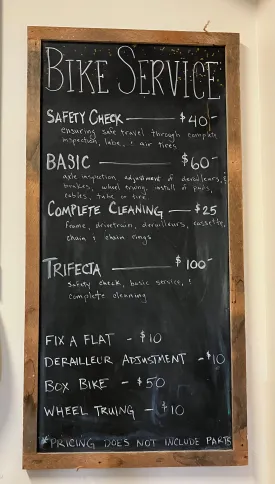 BIKE SERVICE
SAFETY CHECK — $40-
ensuring safe travel through complete
inspection, lube, & air tires
BASIC — $60-
axle inspection, adjustment of derailleurs, &
brakes, wheel truing, install of pads,
cables, tube or tire
COMPLETE CLEANING — $25
Frame, drivetrain, derailleurs, cassette,
chain & chain rings
TRIFECTA — $100-
Safety check, basic service, &
complete cleaning
FIX A FLAT - $10
DERAILLEUR ADJUSTMENT - $10
BOX BIKE - $50
WHEEL TRUING - $10
*PRICING DOES NOT INCLUDE PARTS